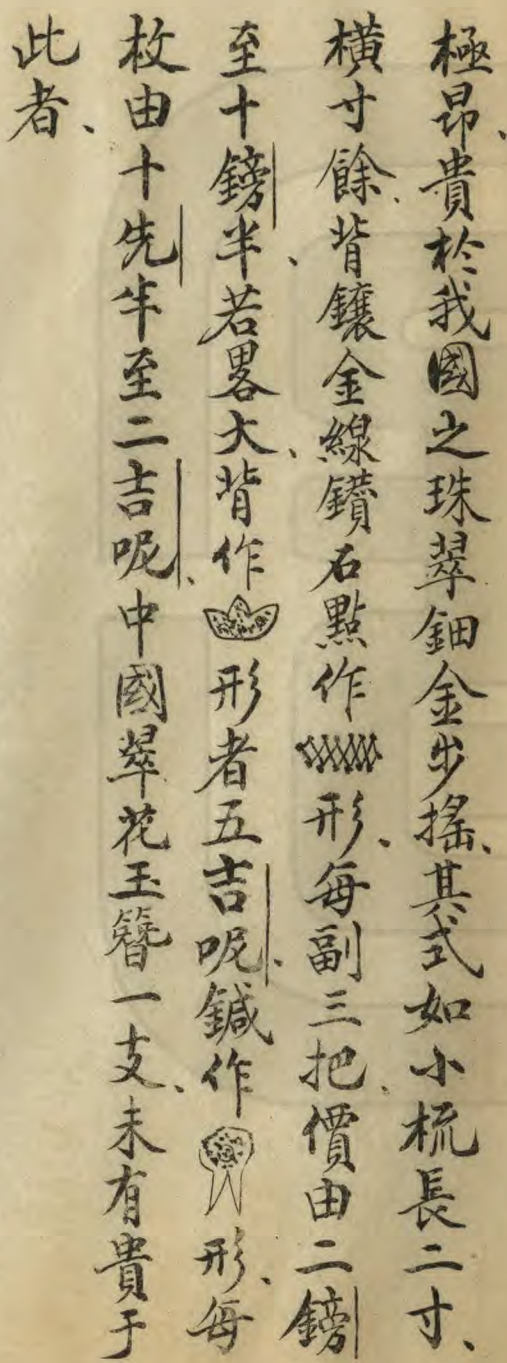 極昂、貴於我國之珠翠鈿金步搖、其式如小梳長二寸、
橫寸餘、背鑲金線鑽石點作形、每副三把、價由二鎊
至十鎊半、若畧大、背作形者五吉呢、鍼作形、每
枚由十先半至二吉呢、中國翠花玉簪一支、未有貴于
此者、